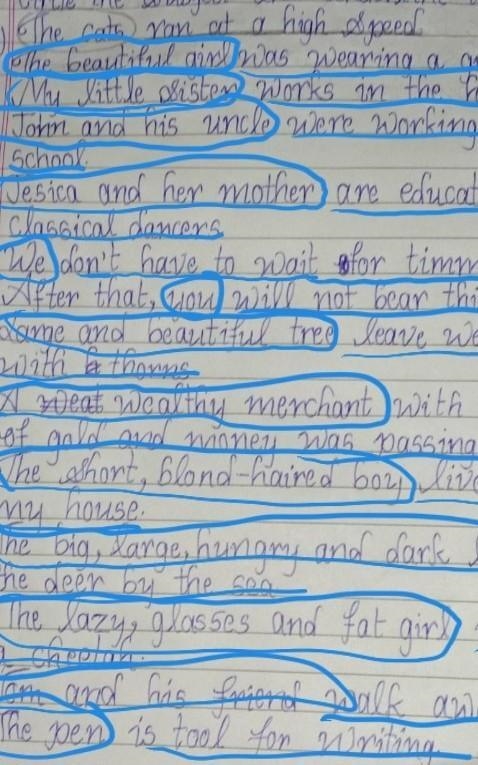 the
The cats ran at a high speed
The beautiful girl was wearing a
My little sister works in the
John and his uncle were working
school.
Jesica and her mother are educat
classical dancers
We don't have to wait for timm
After that, you will not bear thi
and beautiful tree leave we
with thorns
A weat wealthy merchant with
of gold and money was passing
The short, blond-haired boy live
my house.
The big, large, hungry and dark
the deer by the sea
The lazy, glasses and fat girl
a cheetah.
Tom and his friend walk aw
The pen is tool for writing.